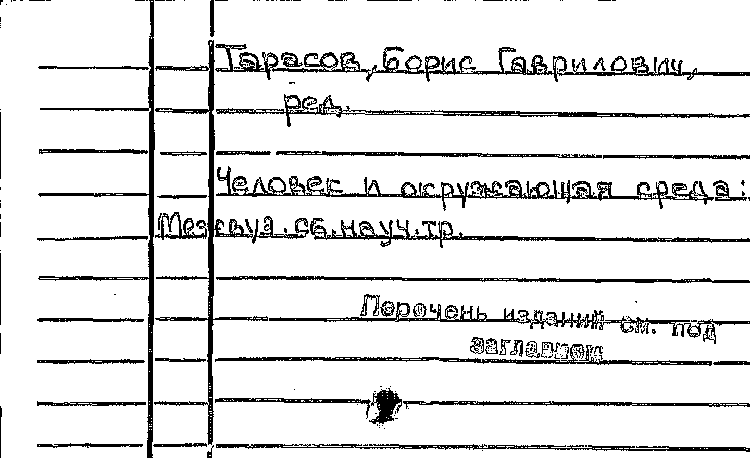 Тарасов, Борис Гаврилович,
ред.
Человек и окружающая среда:
Межвуз. сб. науч. тр.
Перечень изданий см. под
заглавием